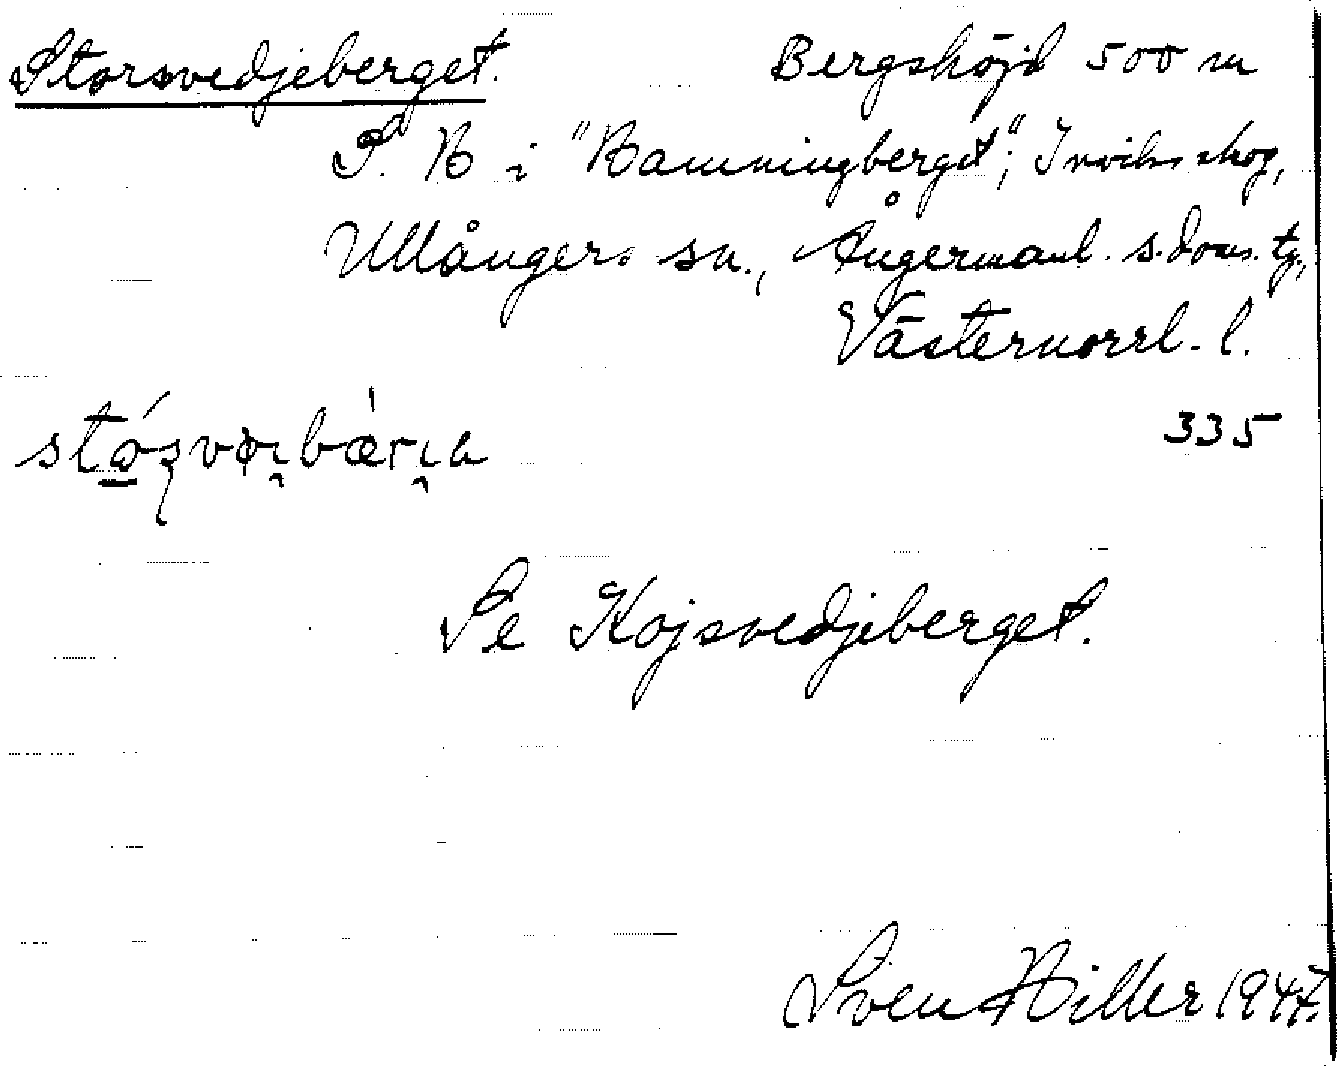 Storsvedjeberget. Bergshöjd 500 m
S. B i "Bamningberget"; Inviks skog,
Ullångers sn., Ångermanl. s. doms. tg.,
Västernorrl. l.
335
Se Kojsvedjeberget.
Sven Hiller 1947.